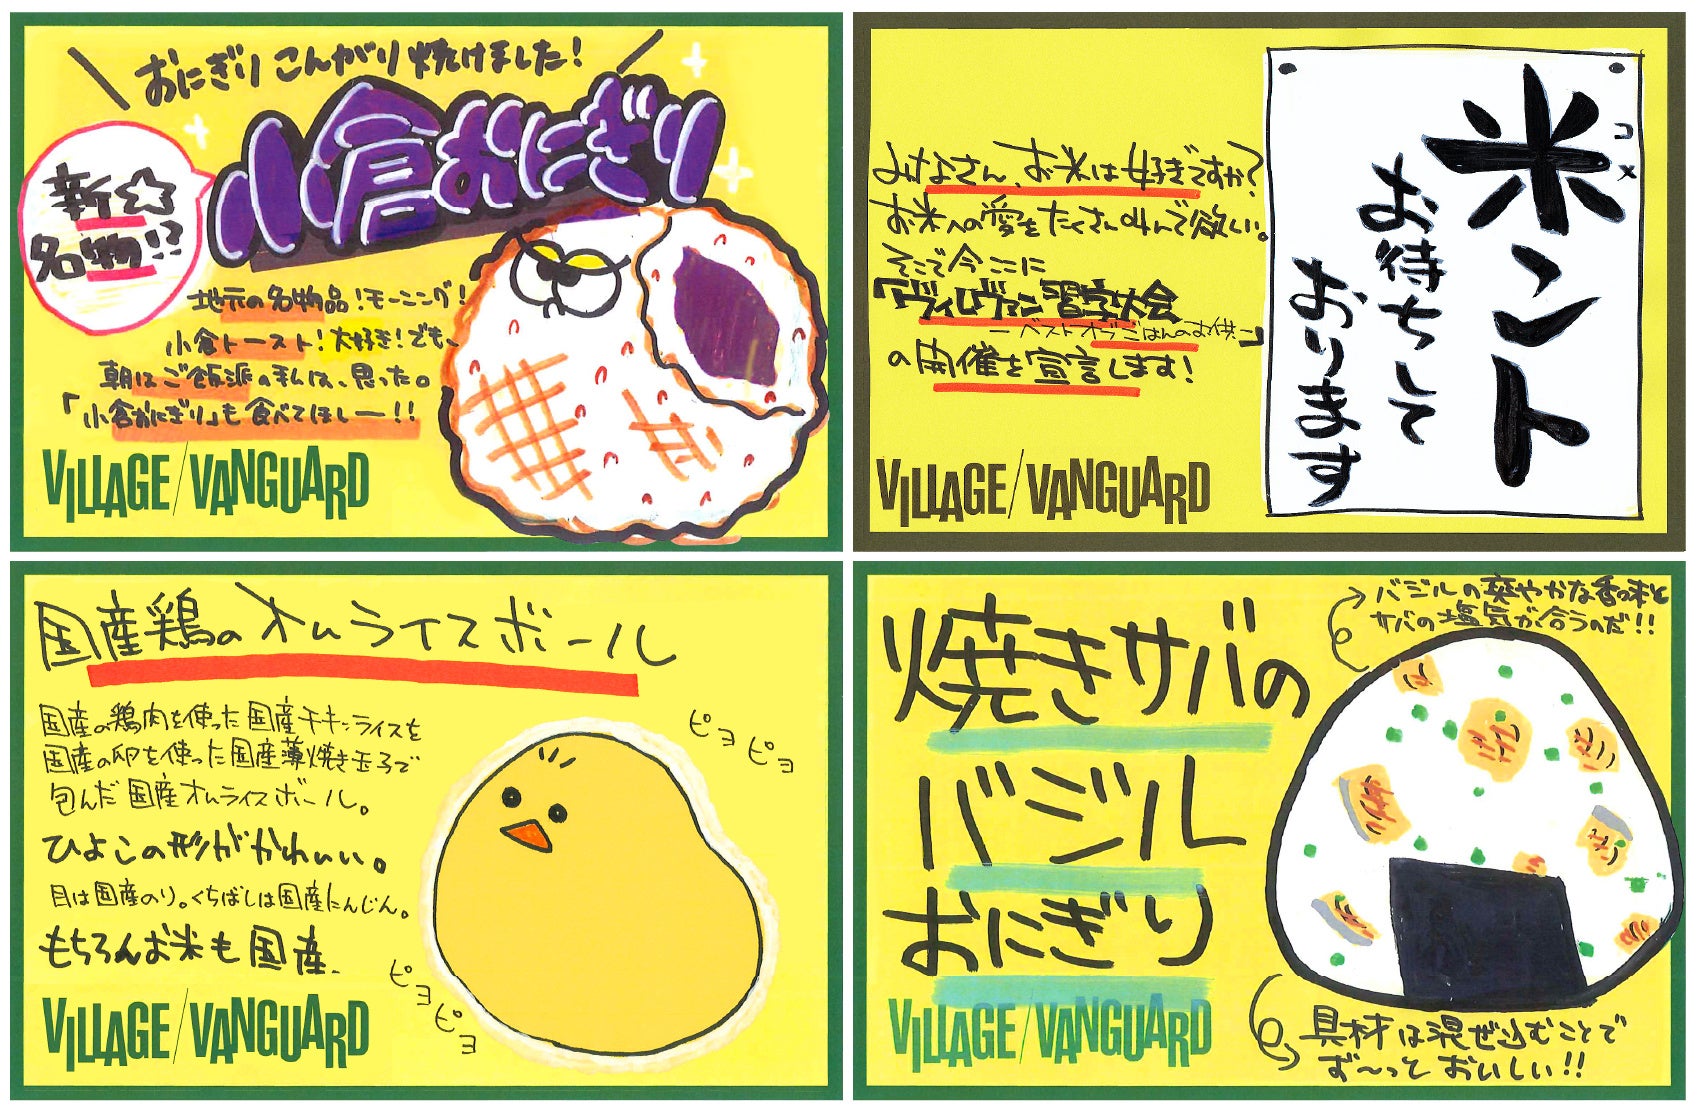 おにぎりこんがり焼けました!
小倉おにぎり
新☆
名物!?
地元の名物品!モーニング!
小倉トースト!大好き!でも、
朝はご飯派の私は、思った。
「小倉おにぎり」も食べてほしー!!
VILLAGE/VANGUARD
コメ
米ント
お待ちして
おります
みなさん、お米は好きですか?
お米への愛をたくさん叫んで欲しい。
そこで今ここに
「ヴィレヴァン習字大会
ーベストオブごはんのお供ー」
の開催を宣言します!
VILLAGE/VANGUARD
国産鶏のオムライスボール
国産の鶏肉を使った国産チキンライスを
国産の卵を使った国産薄焼き玉子で
包んだ国産オムライスボール。
ひよこの形がかわいい。
目は国産のり。くちばしは国産にんじん。
もちろんお米も国産。
ピヨピヨ
ピヨピヨ
VILLAGE/VANGUARD
バジルの爽やかな香味と
サバの塩気が合うのだ!!
焼きサバの
バジル
おにぎり
具材は混ぜ込むことで
ず〜っとおいしい!!
VILLAGE/VANGUARD